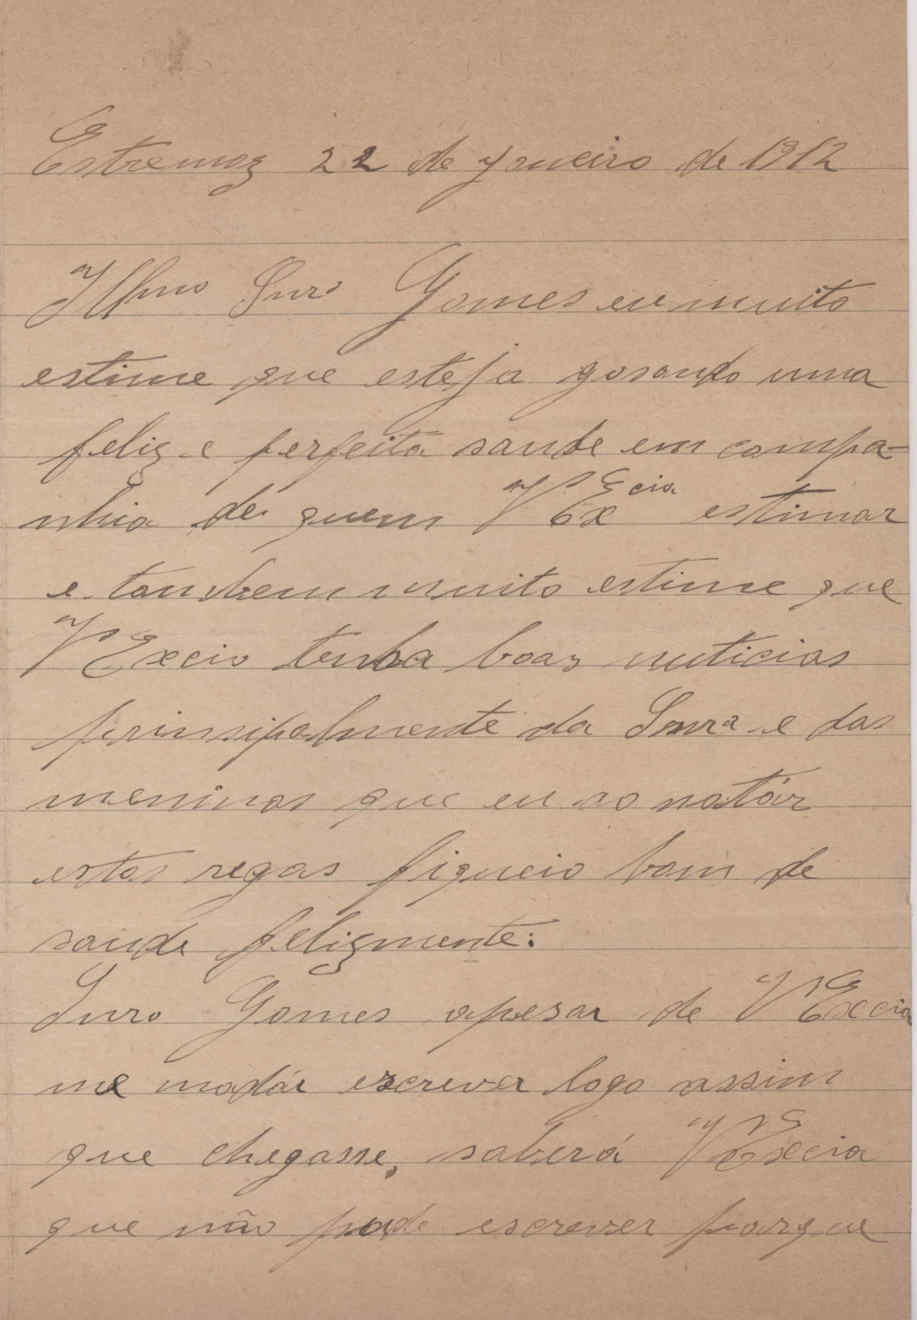 Estremoz 22 de Janeiro de 1912
Illmo Snro Gomes eu muito
estime que esteja gosando uma
feliz e perfeita saude em compa-
nhia de quem V Excia estimar
e tambem muito estime que
V Excia tenha boas nuticias
prinsipalmente da Snra e das
meninas que eu ao notár
estas regas fiqueio bom de
saude felizmente:
Snro Gomes apesar de V Excia
me madár escrever logo assim
que chegasse, saberá V Excia
que não pude escrever porque